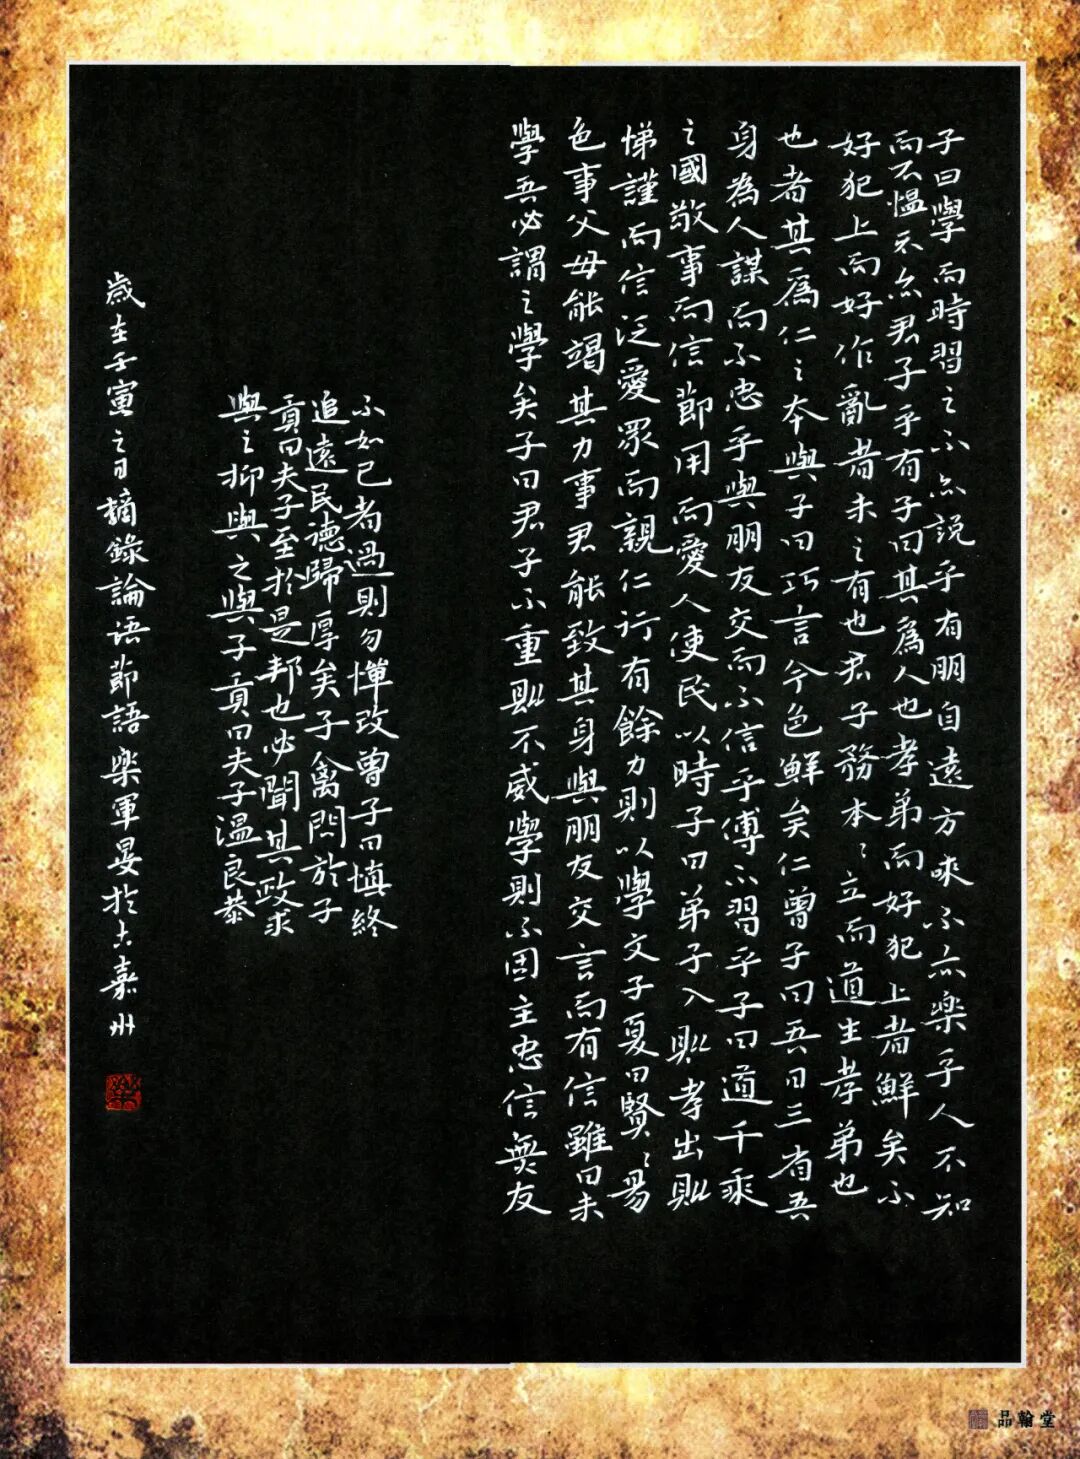 子曰學而時習之不亦說乎有朋自遠方來不亦樂乎人不知
而不愠不亦君子乎有子曰其為人也孝弟而好犯上者鮮矣不
好犯上而好作亂者未之有也君子務本〻立而道生孝弟也
也者其爲仁之本與子曰巧言令色鮮矣仁曾子曰吾日三省吾
身為人謀而不忠乎與朋友交而不信乎傳不習乎子曰道千乘
之國敬事而信節用而愛人使民以時子曰弟子入則孝出則
悌謹而信泛愛眾而親仁行有餘力則以學文子夏曰賢〻易
色事父母能竭其力事君能致其身與朋友交言而有信雖曰未
學吾必謂之學矣子曰君子不重則不威學則不固主忠信無友
不如己者過則勿憚改曾子曰慎終
追遠民德歸厚矣子禽問於子
貢曰夫子至於是邦也必聞其政求
與之抑與之與子貢曰夫子温良恭
歲在壬寅之日摘錄論语節語樂軍晏於古嘉州
品翰堂